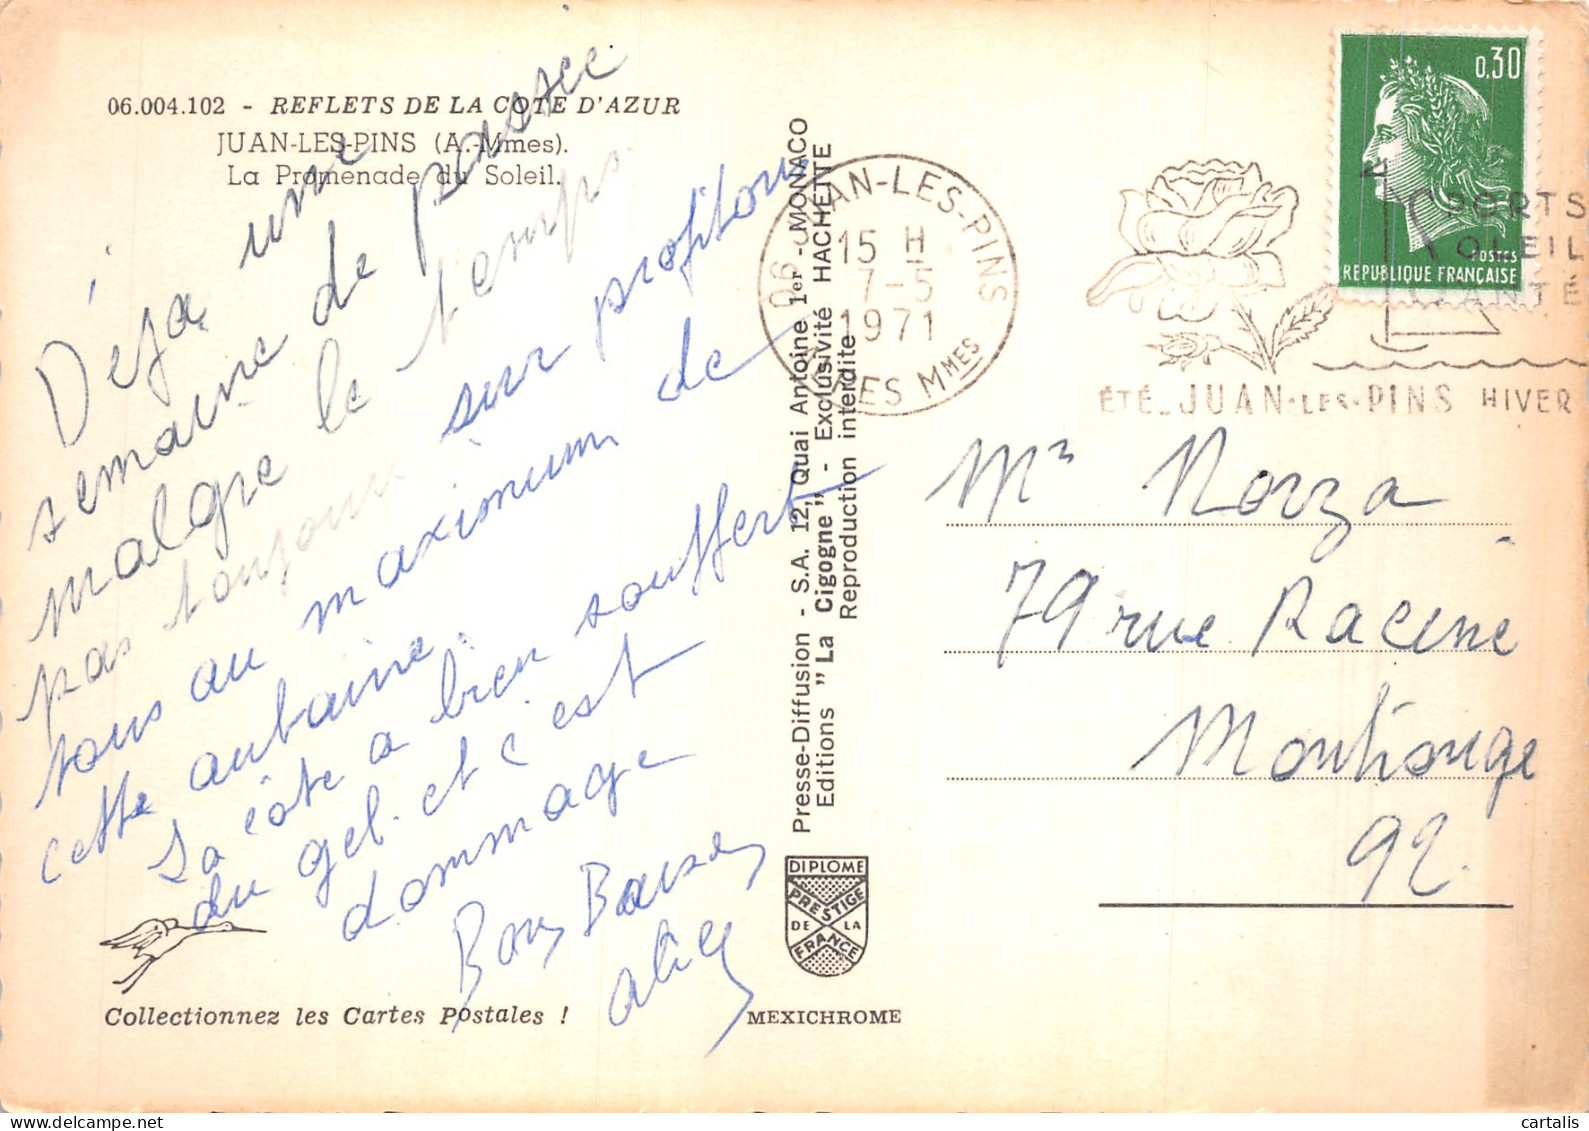 06.004.102 - REFLETS DE LA COTE D'AZUR
JUAN-LES-PINS (A.-Mmes).
La Promenade du Soleil.
Déjà une
semaine de passée
malgré le temps
pas toujours sur profitons
tous au maximum de
cette aubaine.
La côte a bien souffert
du gel et c'est
dommage
Bons Baisers
Alice
Collectionnez les Cartes Postales !
MEXICHROME
DIPLOME
PRESTIGE
DE LA
FRANCE
Presse-Diffusion - S.A. 12, Quai Antoine 1er - MONACO
Editions "La Cigogne" - Exclusivité HACHETTE
Reproduction interdite
06 JUAN-LES-PINS
15 H
7-5
1971
ALPES MMES
SPORTS
SOLEIL
SANTÉ
ÉTÉ_JUAN-LES-PINS HIVER
0,30
POSTES
REPUBLIQUE FRANÇAISE
Mr Norza
79 rue Racine
Montrouge
92.
cartalis